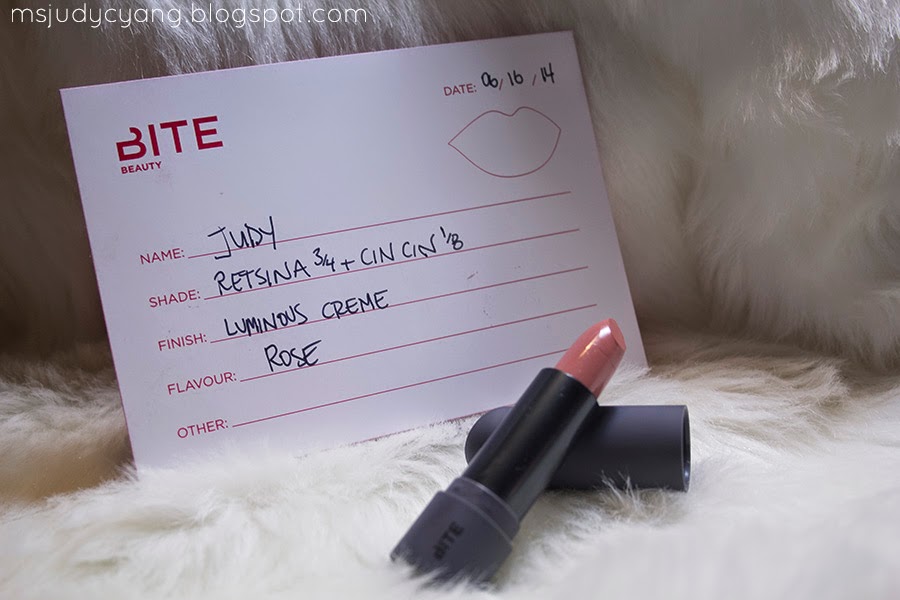 msjudycyang.blogspot.com
DATE: 06/16/14
BITE
BEAUTY
NAME: JUDY
SHADE: RETSINA 3/4 + CIN CIN 1/8
FINISH: LUMINOUS CREME
FLAVOUR: ROSE
OTHER:
BITE